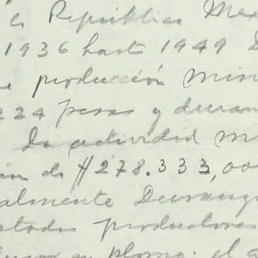 República Mex
1936 hasta 1949 D
producción min
224 pesos y duran
la actividad m
de $278.333,00
almente Durang
stados productores
en plomo. el